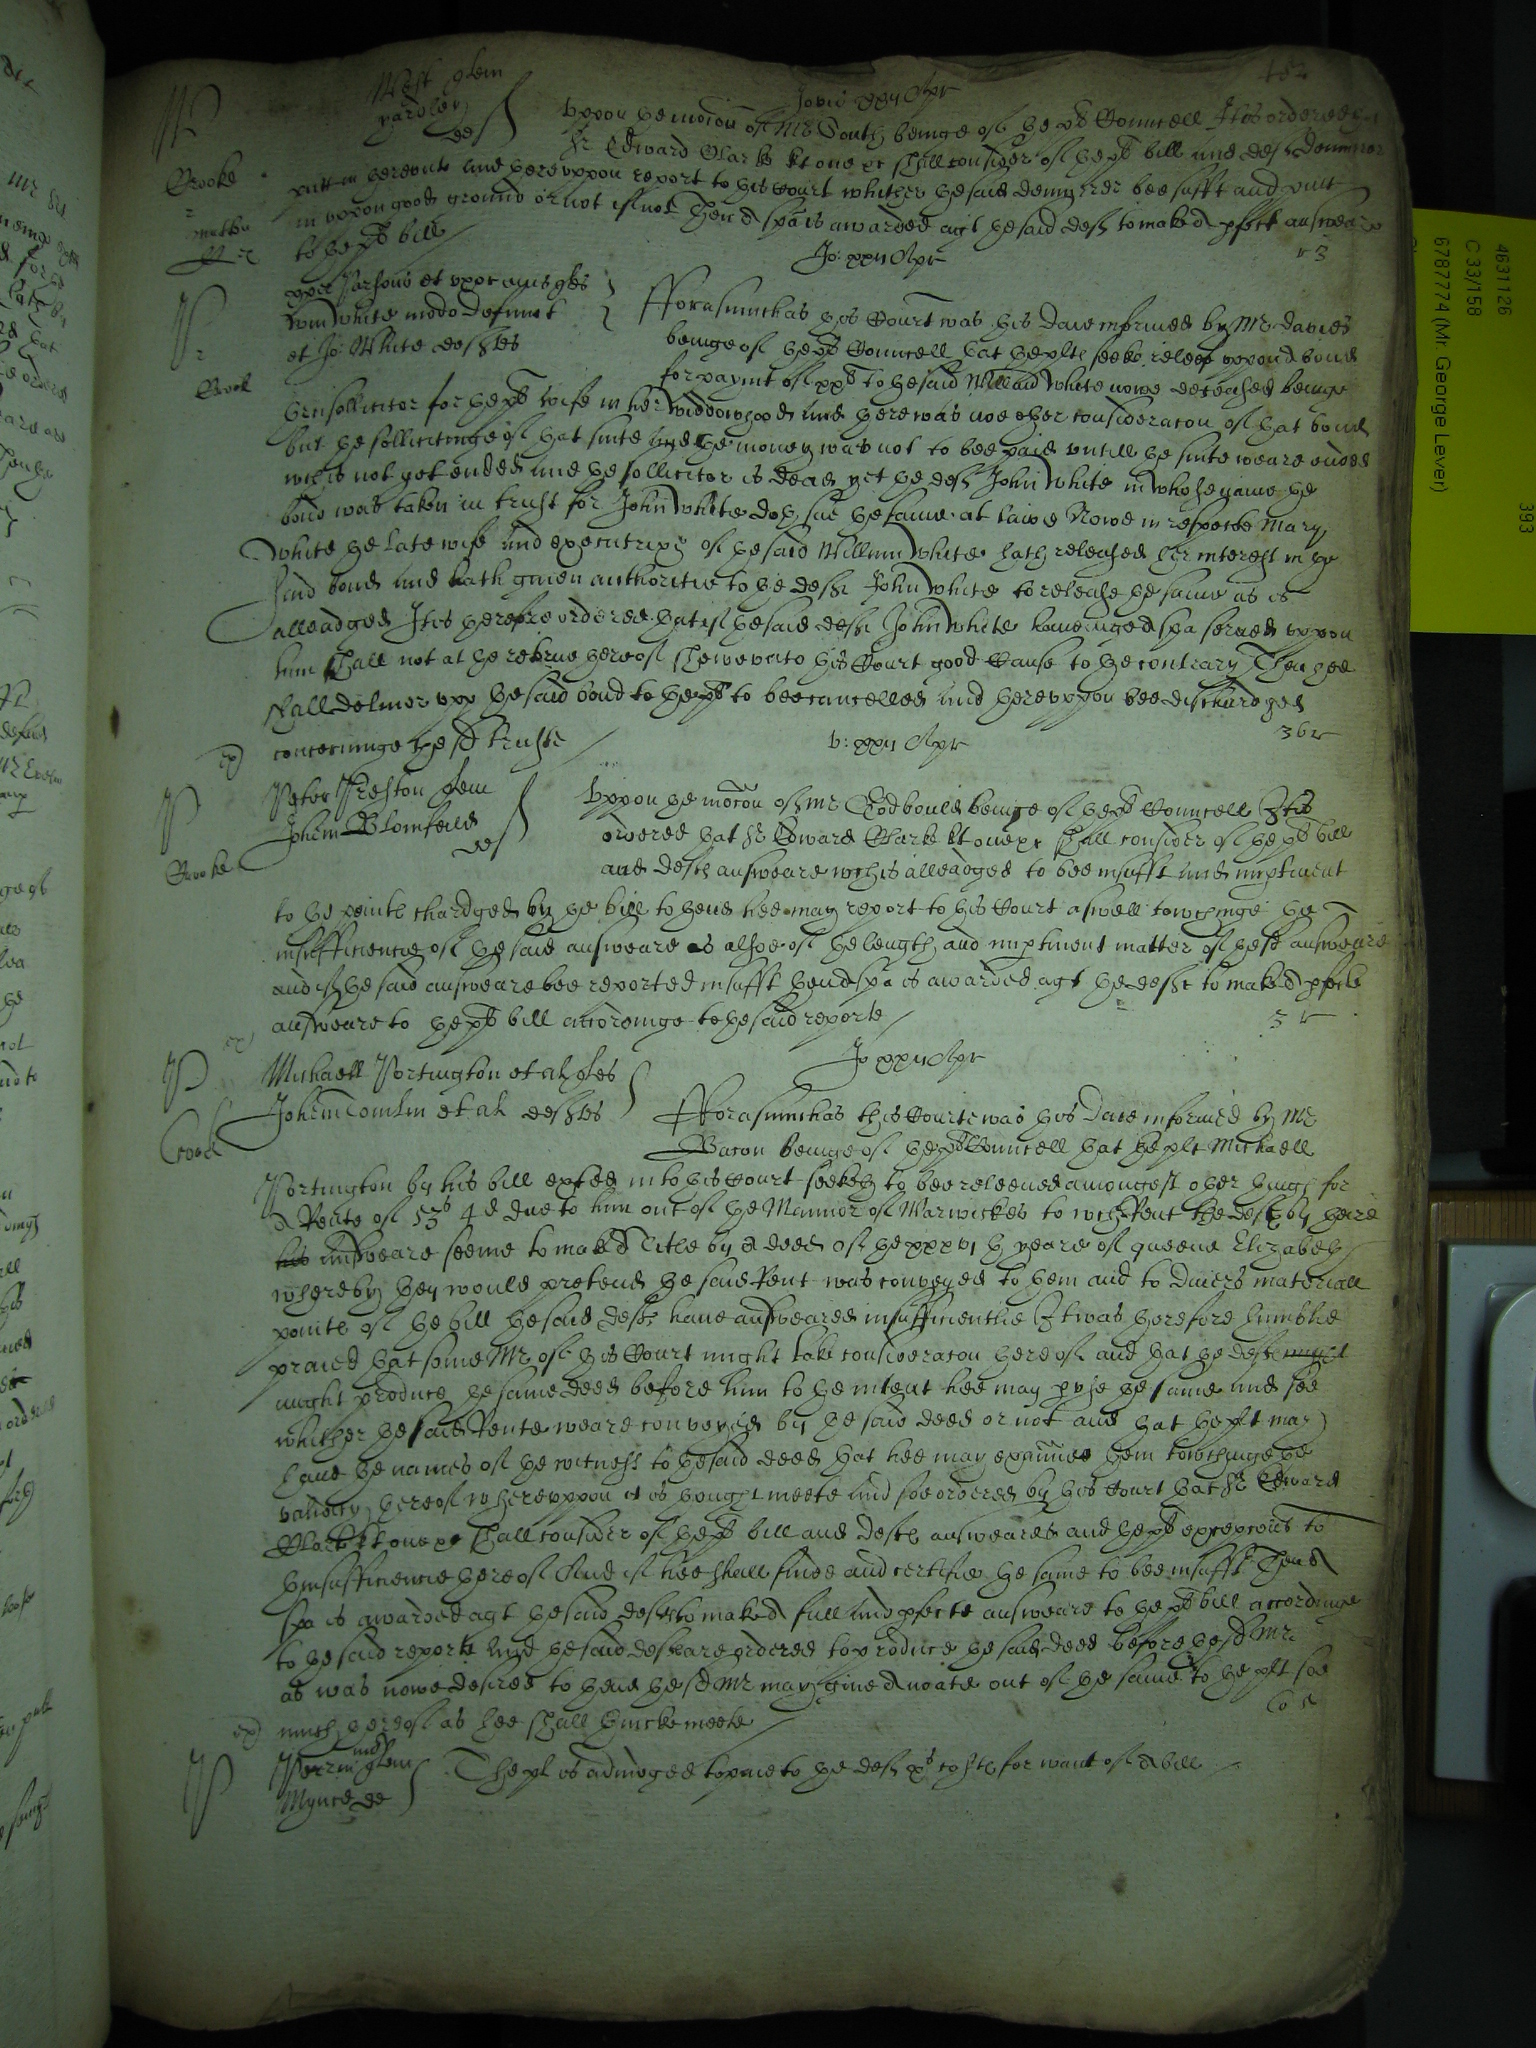 West quem
Yardley
de
Jovis xxii Apr
Uppon the motion of Mr South beinge of the pts Councell It is ordered that
Sr Edward Clarke kt one &c shall consider of the pts bill and defts demurrer
Crooke
putt in thereunto and thereuppon report to this Court whither the said demurrer bee sufft and putt
in uppon good ground or not if not then a spa is awarded agt the said deft to make a pfect answeare
to the pts bill
Jo: xxii Apr
r 3
Parsons et uxor quer
Wm White modo defunct
et Jo: White deftes
Crook
Fforasmuchas this Court was this daie informed by Mr Davies
beinge of the pts Councell that the plts seeke releef uppon a bond
for paymt of xxs to the said William White nowe deceased beinge
then sollicitor for the pts wife in her widdowhood and there was noe other consideracon of that bond
but the sollicitinge of that suite and the money was not to bee paid untill the suite weare ended
wch is not yet ended and the sollicitor is dead yet the deft John White in whose name the
bond was taken in trust for John White doth sue the same at lawe Nowe in respecte Mary
White the late wife and executrix of the said William White hath released her interest in the
said bond and hath given authoritie to the deft John White to release the same as is
alleadged It is therefore ordered that if the said deft John White haveinge a spa served uppon
him shall not at the retorne thereof shewe unto this Court good Cause to the contrary Then hee
shall deliver upp the said bond to the pts to bee cancelled and thereuppon bee discharged
concerninge the sd truste
ex
V: xxii Apr
Peter Preston quem
John Blomfeild
de
Crooke
Uppon the motion of Mr Godbould beinge of the pts Councell It is
ordered that Sr Edward Clarke kt one &c shall consider of the pts bill
and defts answeare wch is alleadged to bee insufft and imptinent
to the pointe chardged by the bill to thend hee may report to this Court aswell towchinge the
insufficiencie of the said answeare as alsoe of the length and imptinent matter of the sd answeare
and if the said answeare bee reported insufft then a spa is awarded agt the deft to make a pfecte
answeare to the pts bill accordinge to the said reporte
ex
3 r
Jo xxii Apr
Michaell Portington et al qtes
John Tomlin et al deftes
Crook
Fforasmuchas this Courte was this daie informed by Mr
Bacon beinge of the pts Councell that the plt Michaell
Portington by his bill exhibited into this Court seeketh to bee releeved amongest other things for
a Rente of 53s 4d due to him out of the Mannor of Warwickes to wch Rent the defts by theire
answeare seeme to make a title by a deed of the xxxvith yeare of queene Elizabeth
whereby they would pretend the said Rent was conveyed to them and to divers materiall
pointe of the bill the said defts have answeared insufficientlie It was therefore humblie
praied that some Mr of this Court might take consideracon thereof and that the defts
might produce the same deed before him to the intent hee may pvse the same and see
whither the said Rente weare conveyed by the said deed or not and that the plt may
have the names of the witness to the said deed that hee may examine them towchinge the
validity thereof whereuppon it is thought meete and soe ordered by this Court that Sr Edward
Clarke kt one &c shall consider of the pts bill and defts answeares and the pts excepcons to
thinsufficiencie thereof And if hee shall finde and certifie the same to bee insufft Then a
spa is awarded agt the said defts to make a full and pfecte answeare to the pts bill accordinge
to the said reporte And the said defts are ordered to produce the said deed before the sd Mr
as was nowe desired to thend the sd Mr may give a noate out of the same to the plt soe
much thereof as hee shall thincke meete
ex
The pl is adiudged to paie to the deft xs costs for want of a bill
Mynce de
4631126
C 33/158
6787774 (Mr. George Lever)
393